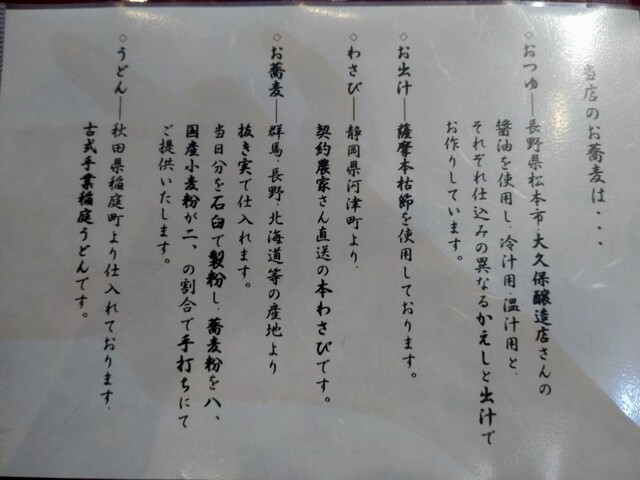 当店のお蕎麦は・・・
◇おつゆ―長野県松本市・大久保醸造店さんの
醤油を使用し、冷汁用・温汁用と、
それぞれ仕込みの異なるかえしと出汁で
お作りしています。
◇お出汁―薩摩本枯節を使用しております。
◇わさび―静岡県河津町より、
契約農家さん直送の本わさびです。
◇お蕎麦―群馬・長野・北海道等の産地より
抜き実で仕入れます。
当日分を石臼で製粉し、蕎麦粉を八、
国産小麦粉が二、の割合で手打ちにて
ご提供いたします。
◇うどん―秋田県稲庭町より仕入れております、
古式手業稲庭うどんです。